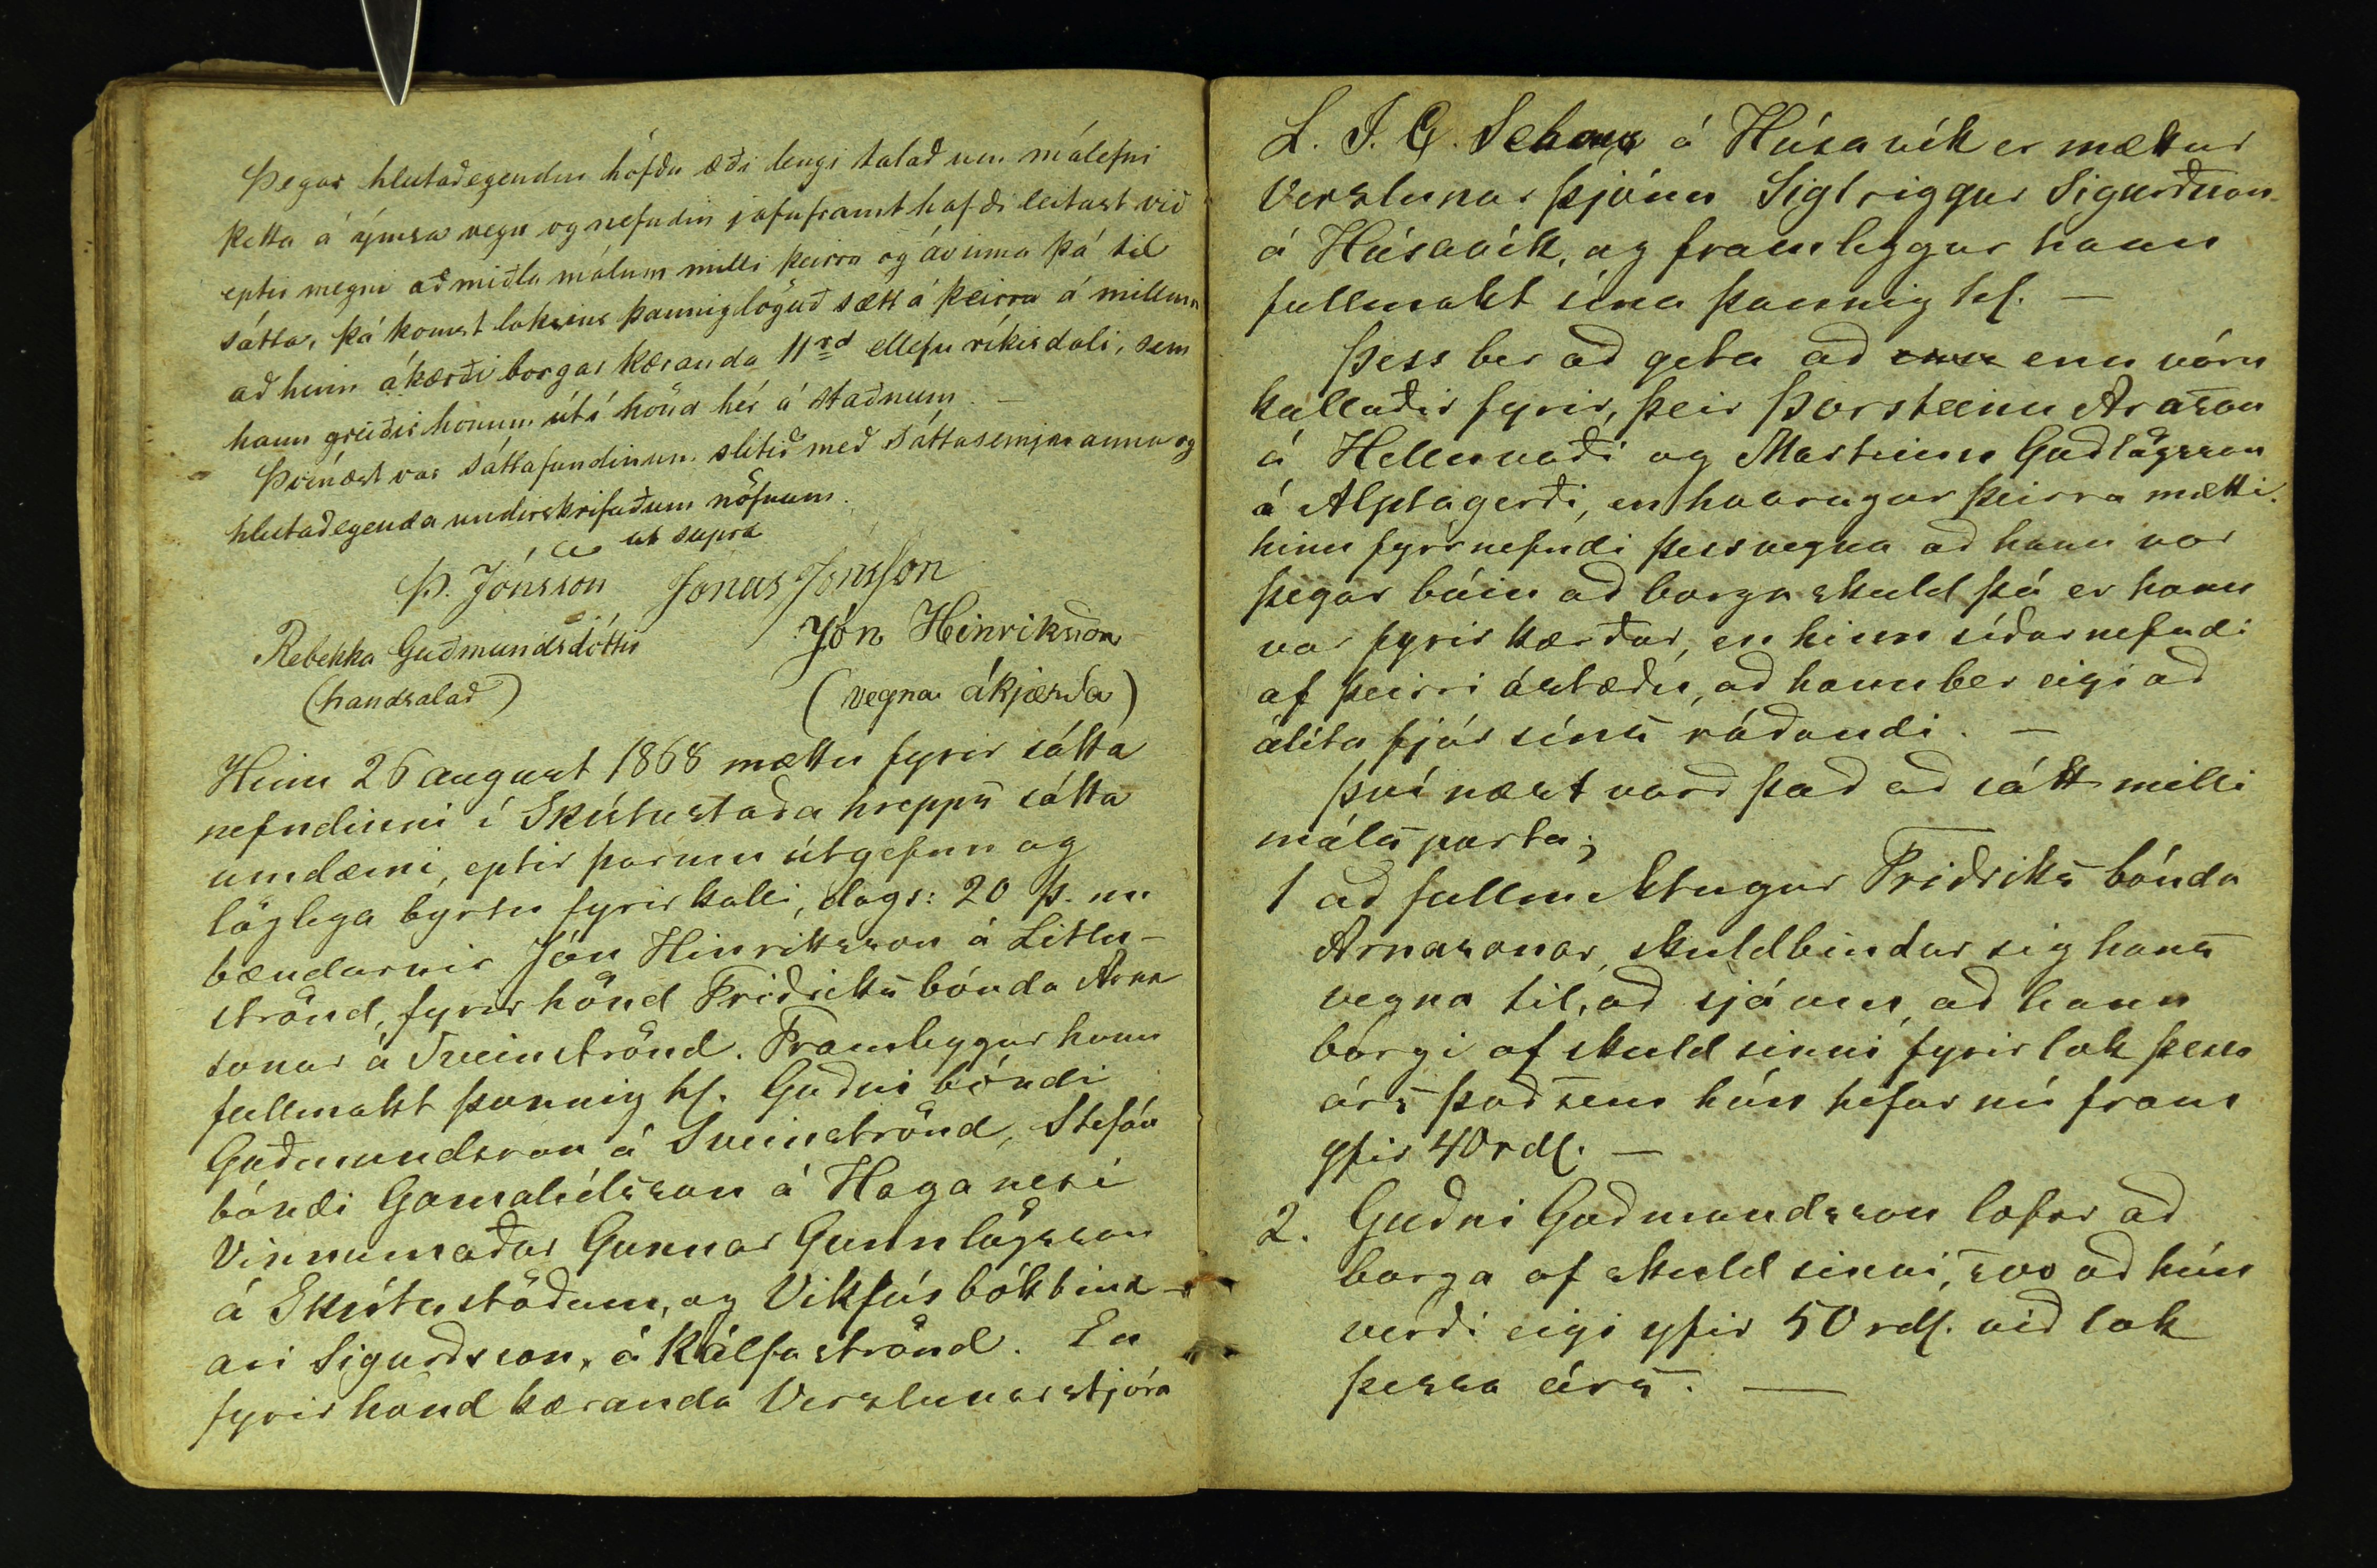 Þegar hlutaðegendur höfðu æði lengi talað um málefni
þetta á ýmsa vegu og nefndin jafnframt hafði leitast við
eptir megni að miðla málum milli þeirra og ávinna þá til
sátta, þá komst loksins þannig löguð sætt á þeirra á millum
að hinn ákærði borgar kæranda 11rd ellefu ríkisdali, sem
hann greiðir honum út í hönd hér á staðnum. –
Þvínæst var sáttafundinum slitið með sáttasemjaranna og
hlutaðegenda undirskrifuðum nöfnum.
ut supra
Þ. Jónsson Jonas Jonsson
Rebekka Guðmundsdóttir Jón Hinriksson
(handsalað) (vegna ákjærða)
Hinn 26 august 1868 mættu fyrir sátta
nefndinni í Skútustaða hrepps sátta
umdæmi, eptir þarum útgefnu og
löglega byrtu fyrirkalli, dags: 20 þ. m
bændurnir Jón Hinriksson á Litlu-
strönd, fyrir hönd Friðriks bónda Arna
sonar á Sveinströnd. Framleggur hann
fullmakt þannig hlj. Guðni bóndi
Guðmundsson á Sveinströnd, Stefán
bóndi Gamalíelsson á Haganesi
Vinnumaður Gunnar Gunnlögsson
á Skútustöðum, og Vikfús bókbind-
ari Sigurðsson, á Kálfaströnd. En
fyrir hönd kæranda Verslunarstjóra
L. J. C. Schou á Húsavík er mættur
Verslunar þjónn Sigtriggur Sigurðsson
á Húsavík, og framleggur hann
fullmakt sína þannig hlj. –
Þess ber að geta að enn vóru
kallaðir fyrir, þeir Þorsteinn Arason
á Helluvaði og Marteinn Guðlögsson
á Alptagerði, en hvorugur þeirra mætti.
hinn fyrnefndi þess vegna að hann var
þegar búin að borga skuld þá er hann
var fyrir kærður, en hinn síðarnefndi
af þeirri ástæðu, að hann ber eigi að
álíta fjár síns ráðandi. –
Því næst varð það að sátt milli
máls parta;
1 að fullmektugur Friðriks bónda
Arnasonar, skuldbindur sig hans
vegna til, að sjá um, að hann
borgi af skuld sinni fyrir lok þessa
árs það sem hún hefur nú fram
yfir 40 rdl. –
2. Guðni Guðmundsson lofar að
borga af skuld sinni, svo að hún
verði eigi yfir 50 rdl. við lok
þessa árs. –